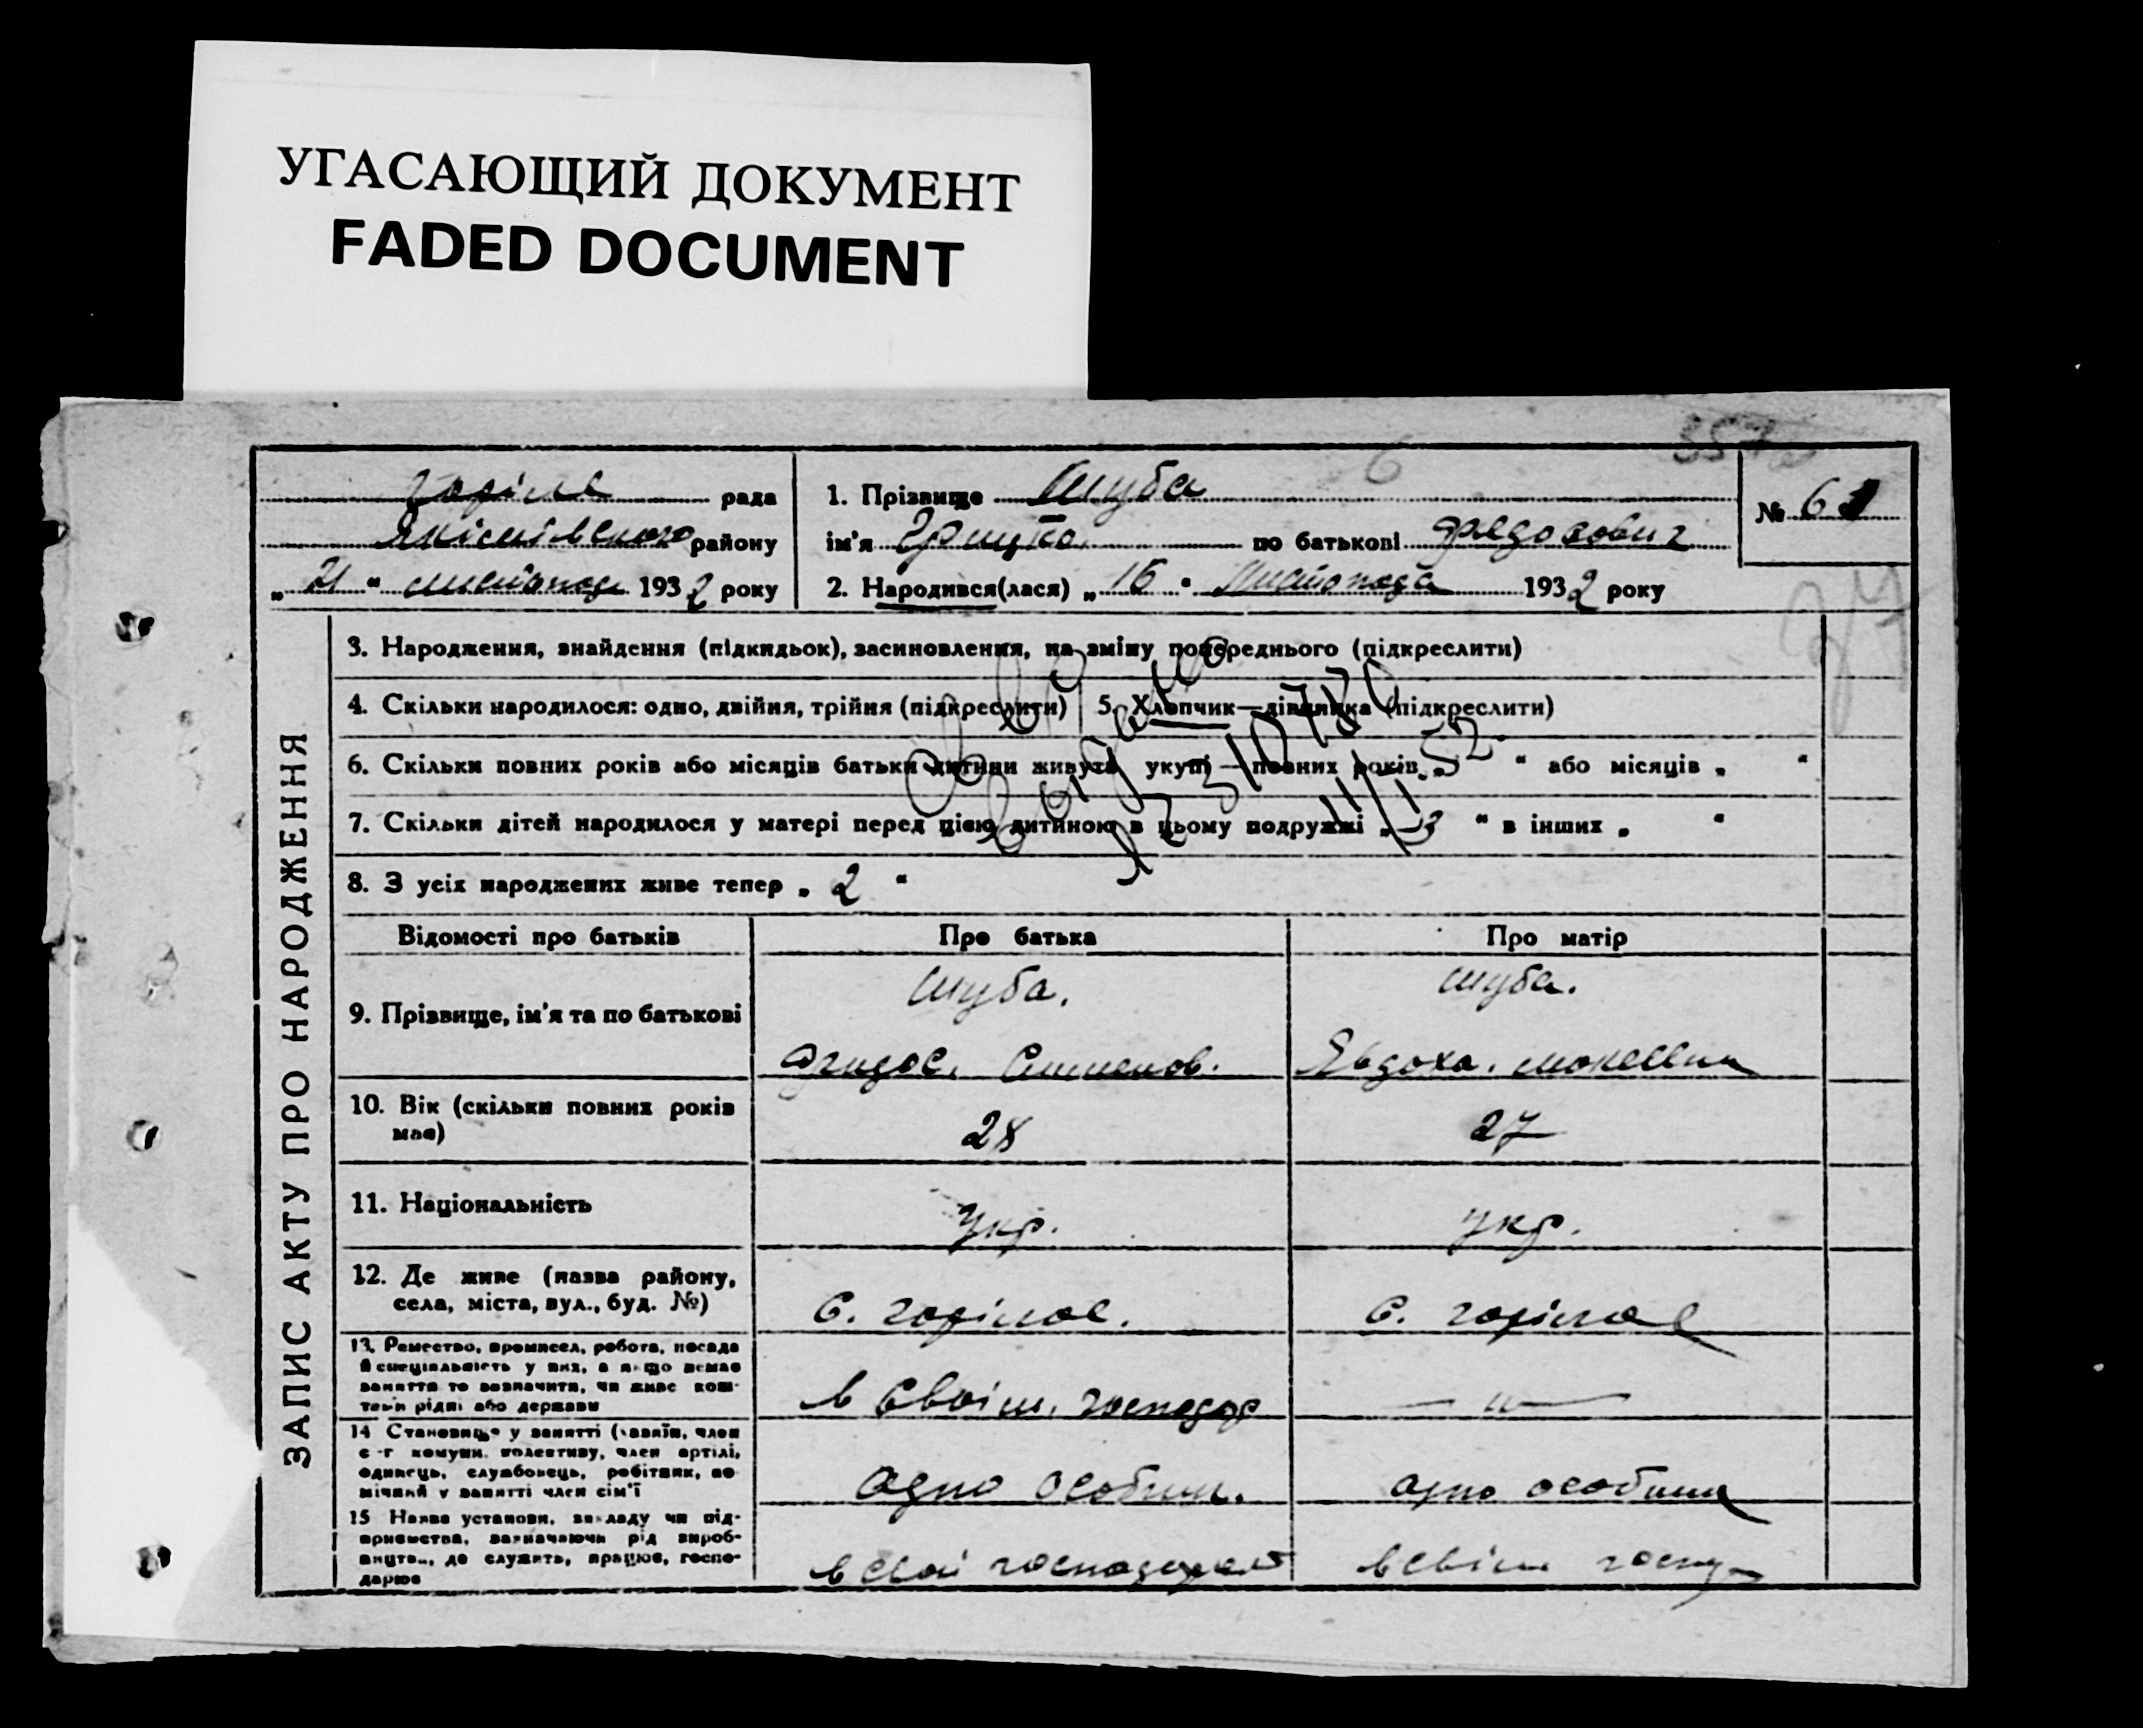 УГАСАЮЩИЙ ДОКУМЕНТ
FADED DOCUMENT
рада
району
„ 21 “ листопад 1932 року
1. Прізвище Шуба
ім'я Грицко по батькові
2. Народився(лася) „ 16 “ Листопада 1932 року
№ 6
ЗАПИС АКТУ ПРО НАРОДЖЕННЯ
3. Народження, знайдення (підкидьок), засиновлення, на зміну попереднього (підкреслити)
4. Скільки народилося: одно, двійня, трійня (підкреслити)
5. Хлопчик—дівчинка (підкреслити)
6. Скільки повних років або місяців батьки дитини живуть укупі — повних років „ “ або місяців „ “
7. Скільки дітей народилося у матері перед цією дитиною в цьому подружжі „ 3 “ в інших „ “
8. З усіх народжених живе тепер „ 2 “
Відомості про батьків
Про батька
Про матір
9. Прізвище, ім'я та по батькові
Шуба.
шуба.
Явдоха.
10. Вік (скільки повних років має)
28
27
11. Національність
Укр.
укр.
12. Де живе (назва району,
села, міста, вул., буд. №)
с. горілое.
с. горілое
13. Ремество, промисел, робота, посада
й спеціальність у них, а якщо немає
заняття то зазначити, чи живе кош-
тами рідні або держави
в своім. господар
— „ —
14 Становище у занятті (хазяїн, член
с-г комуни, колективу, член артілі,
одинець, службовець, робітник, по
мічний у занятті член сім'ї
одно особник.
одно особник
15 Назва установи, закладу чи під-
приємства, зазначаючи рід вироб-
ництв, де служить, працює, госпо-
дарює
в свої
в своім госп